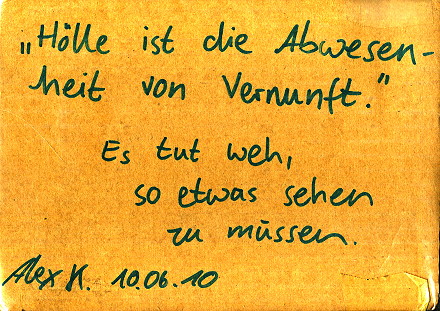 „Hölle ist die Abwesen-
heit von Vernunft.“
Es tut weh,
so etwas sehen
zu müssen.
Alex K. 10.06.10